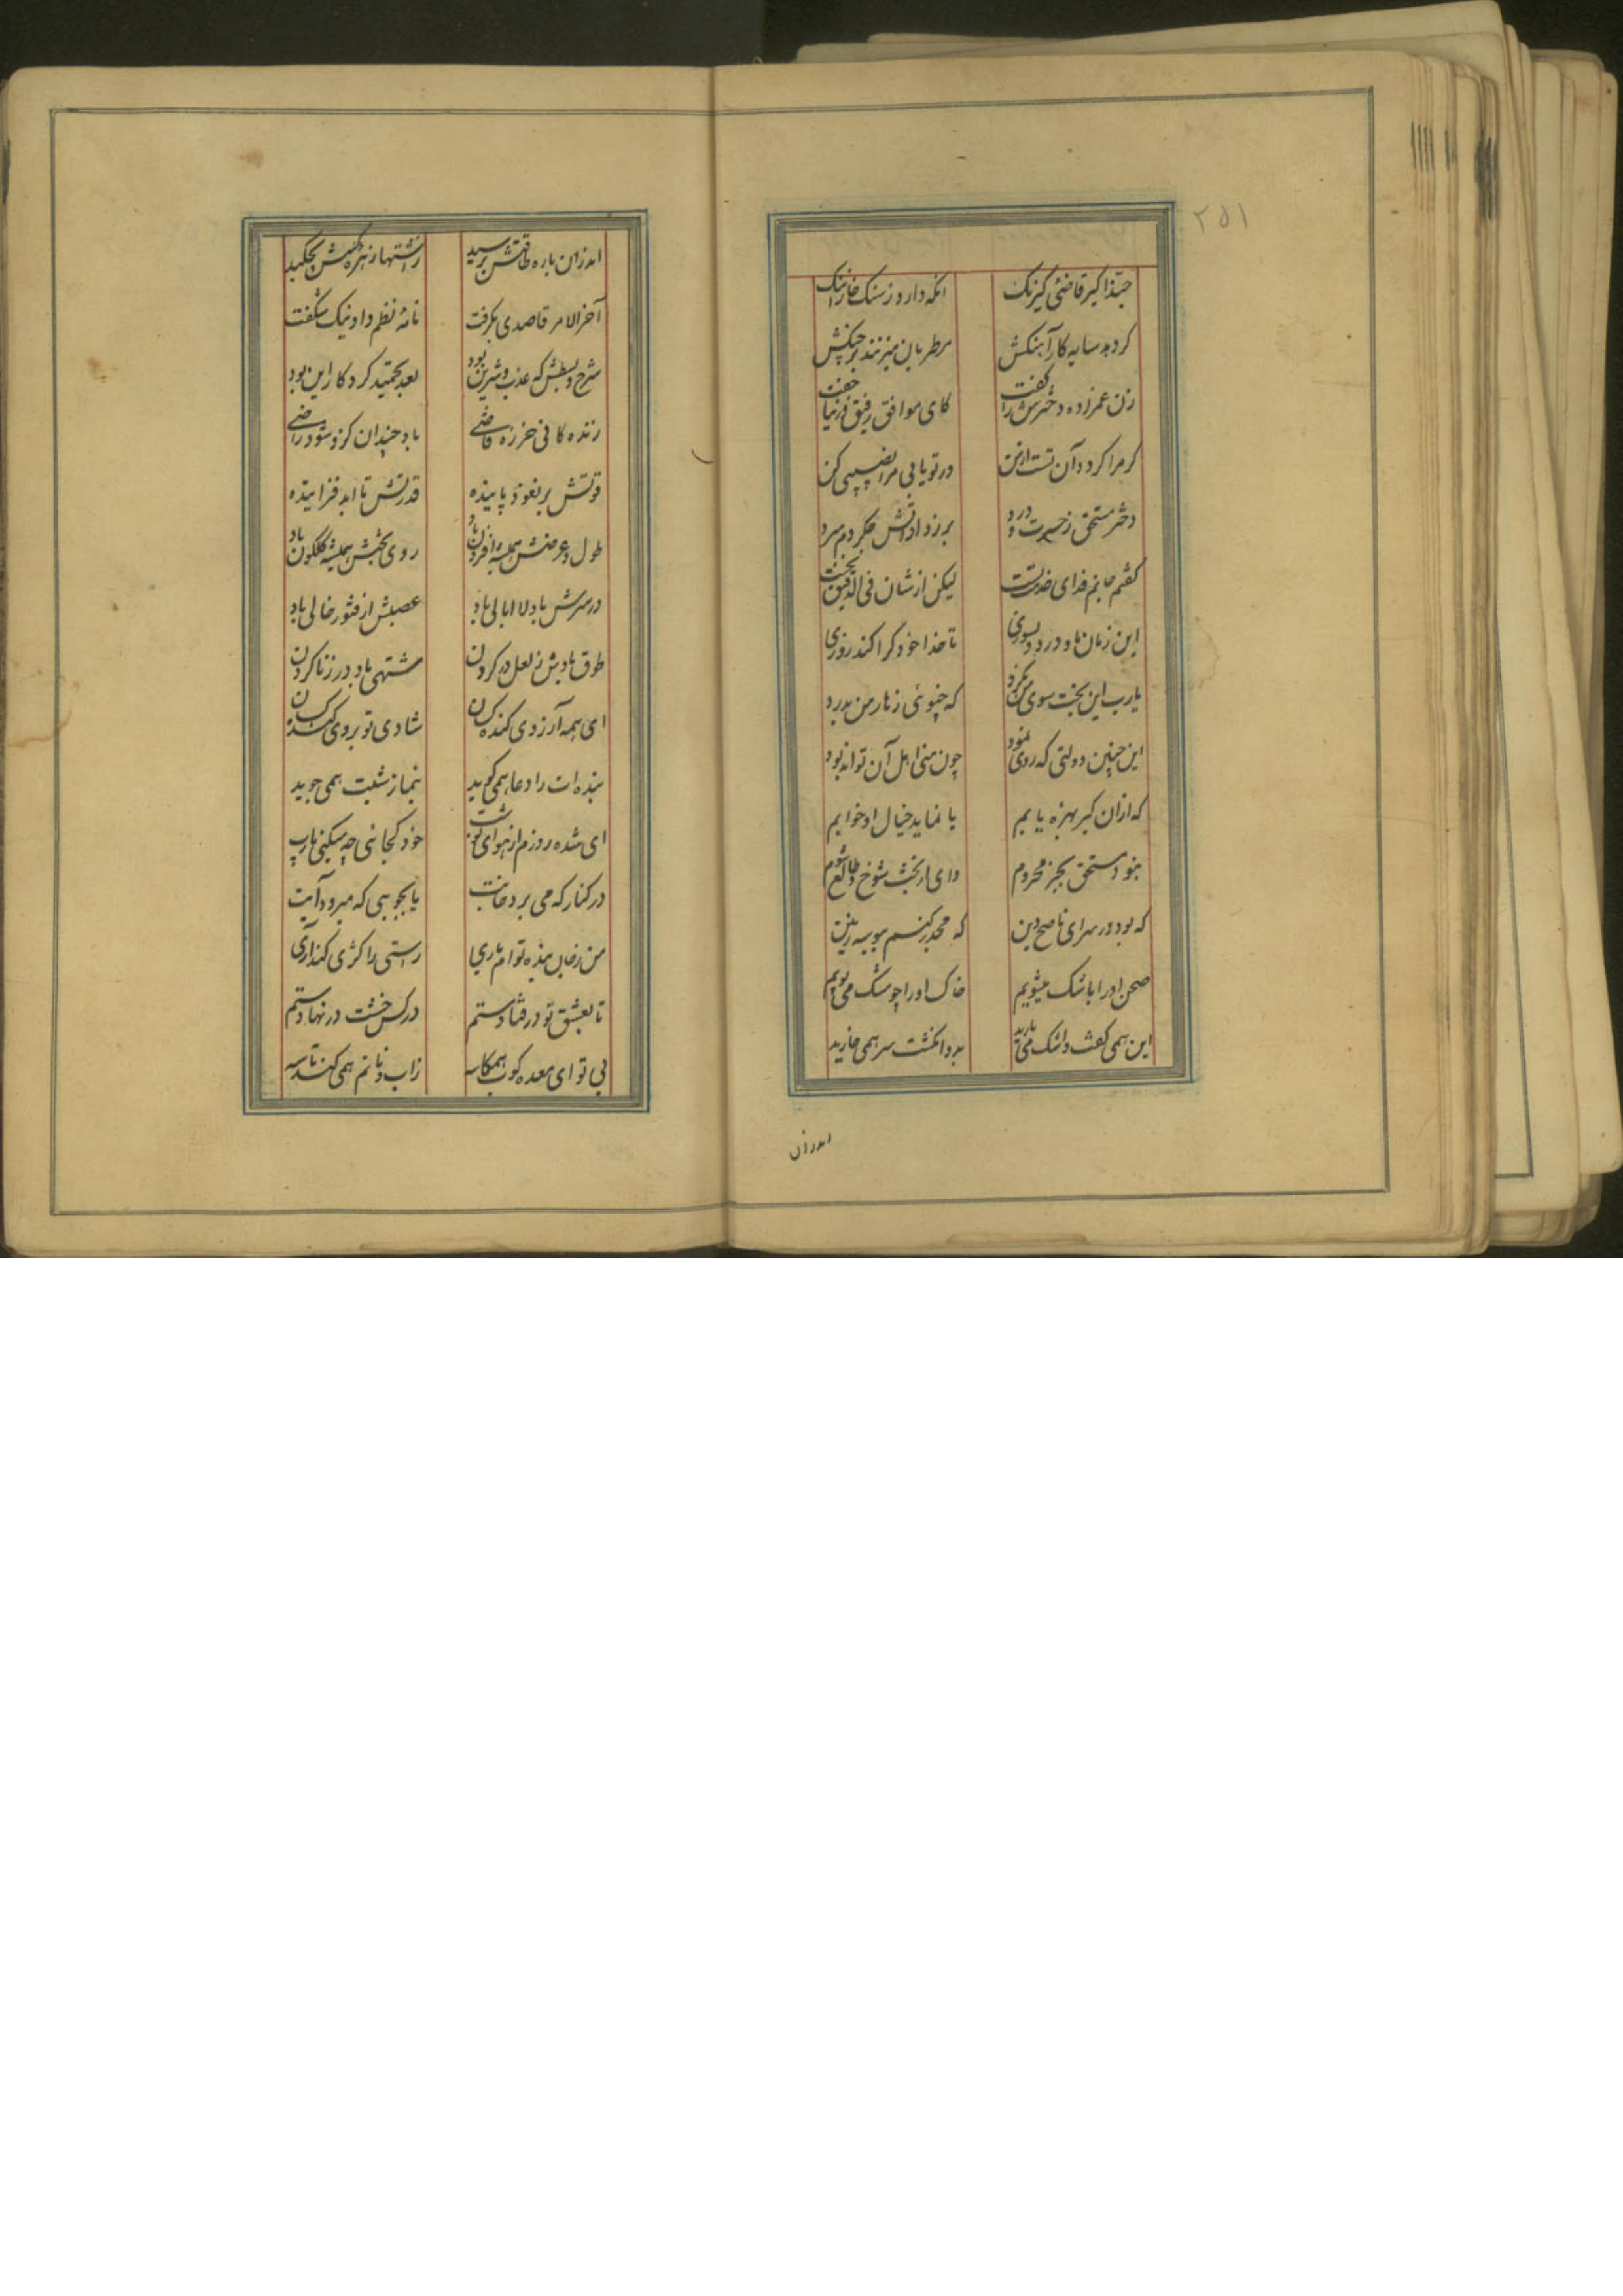 ۲۵۱
حبذا کیر قاضی کیرنک
انکه دارد ز سنک خارا ننک
کرد بد سایه کار آهنکش
مطربان میزنند بر چنکش
زن عمزاده دخترش را گفت
کای موافق رفیق و زیبا جفت
کر مرا کرد و آن تست ازین
در تو یابی مرا نصیبی کن
دختر مستحق ز حسرت و درد
بر زد از آتش جگر دم سرد
گفتم جانم فدای خدمتست
لیکن از شان فی الدقیق بخت
این زمان ما و درد و سوزی
تا خدا خود کرا کند روزی
یارب این بخت سوی من نکرد
که خیوئی زنار من بدرد
این چنین دولتی که روی نمود
چون منی اهل آن تواند بود
که ازان کیر بهره یابم
یا نماید خیال او خوابم
بنود مستحق بجز محروم
وای از بخت شوخ و طالع شوم
که بود در سرای ناصح دین
که محمد کنیم بوسه زمین
صحن او را باشک میشویم
خاک او را چو مشک می بویم
این همی گفت و اشک می بارید
بدو انکشت سر همی خارید
اندران
اندران باره طاقتش برسید
ز اشتها زهره کسش بچکید
آخر الامر قاصدی بکرفت
نامه نظم داد نیک شکفت
شرح و بسطش که عذب و شیرین بود
بعد تحمید کردکار این بود
زنده کانی خرزه قاضی
باد چندان کزو شود راضی
قوتش بر نغوذ پاینده
قدرتش تا ابد فزاینده
طول و عرضش همیشه افزون باد
روی بختش همیشه گلکون باد
در سرش باد لا ابالی باد
عصبش از فتور خالی باد
طوق بادش ز لعل در کردن
مشتهی باد در زنا کردن
ای همه آرزوی کنده کسان
شادی تو بروی کنده کسان
بنده ات را دعا همی گوید
بنماز شبت همی جوید
ای شده روزم از هوای تو شب
خود کجائی چه میکنی یارب
در کنار که می برد خوابت
یا بجویی که میرود آبت
من ز جان بنده توام باری
راستی را کژی کنداری
تا بعشق تو در فتادستم
در کس خشت در نهادستم
بی تو ای معده کوب همکاسه
ز آب و نانم همی کند تاسه